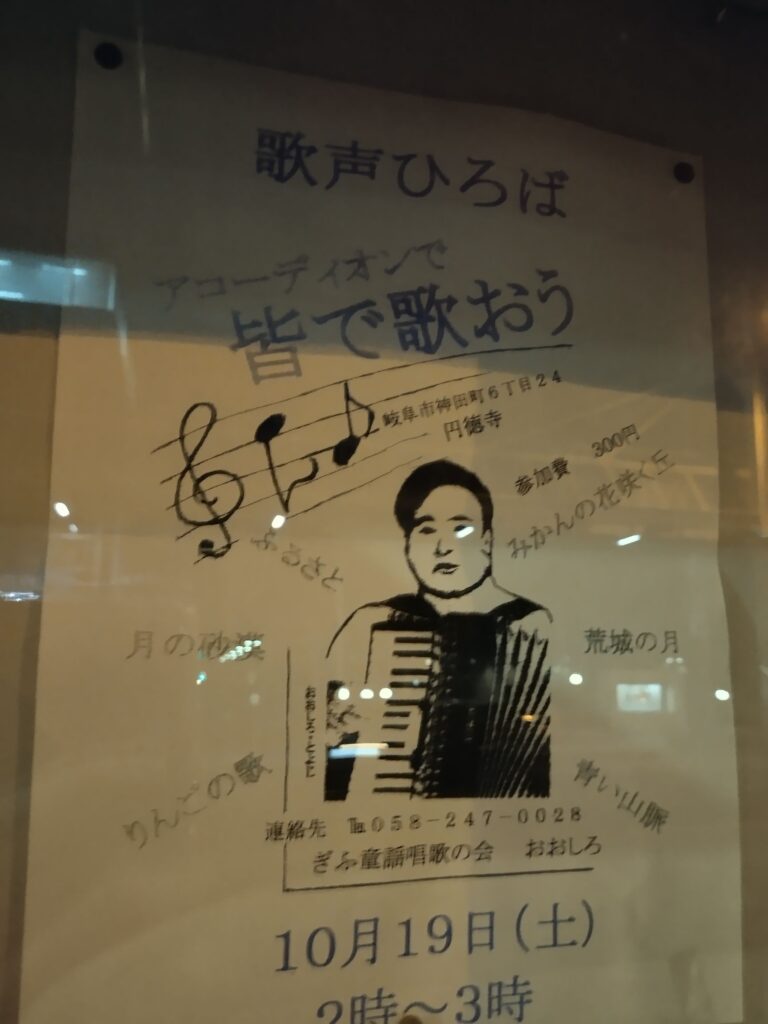 歌声ひろば
アコーディオンで
皆で歌おう
岐阜市神田町6丁目24
円徳寺
参加費 300円
みかんの花咲く丘
ふるさと
月の砂漠
荒城の月
りんごの歌
青い山脈
連絡先 ℡058-247-0028
ぎふ童謡唱歌の会 おおしろ
10月19日(土)
2時~3時